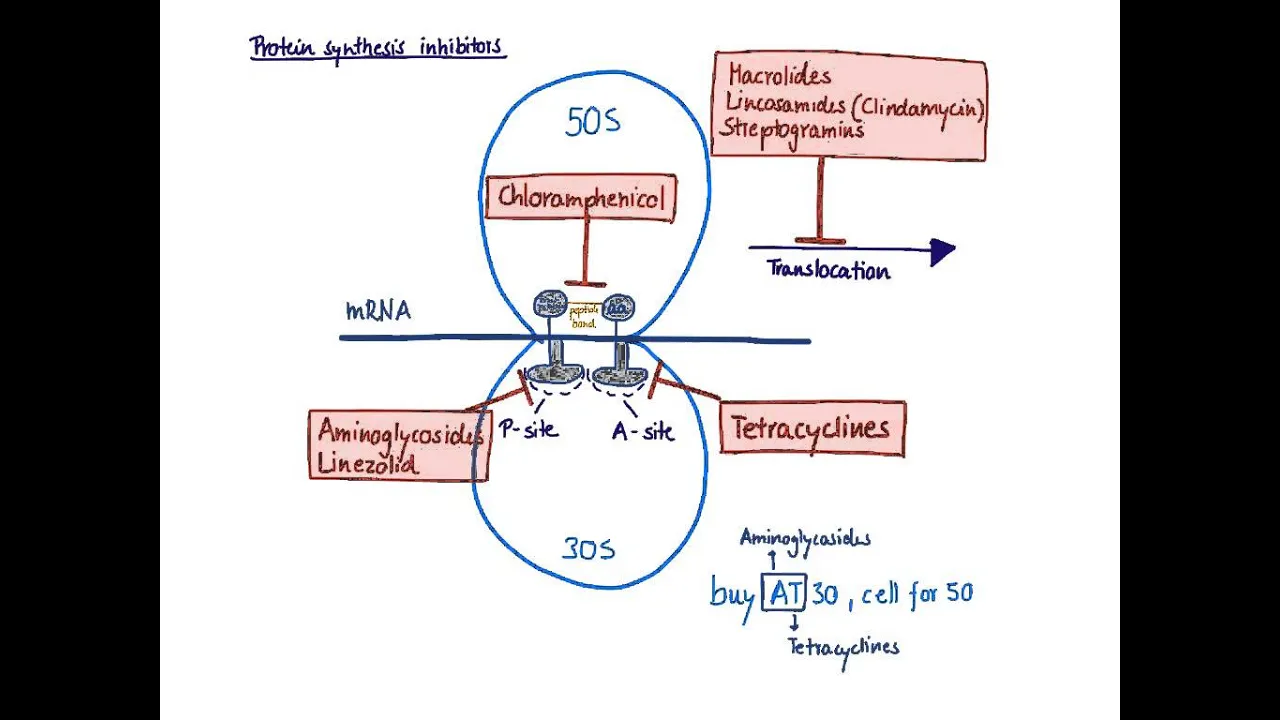 Protein synthesis inhibitors
Macrolides
Lincosamides (Clindamycin)
Streptogramins
50S
Chloramphenicol
Translocation
mRNA
peptide
bond
aa
P-site
A-site
Aminoglycosides
Linezolid
Tetracyclines
30S
Aminoglycosides
buy AT 30, cell for 50
Tetracyclines